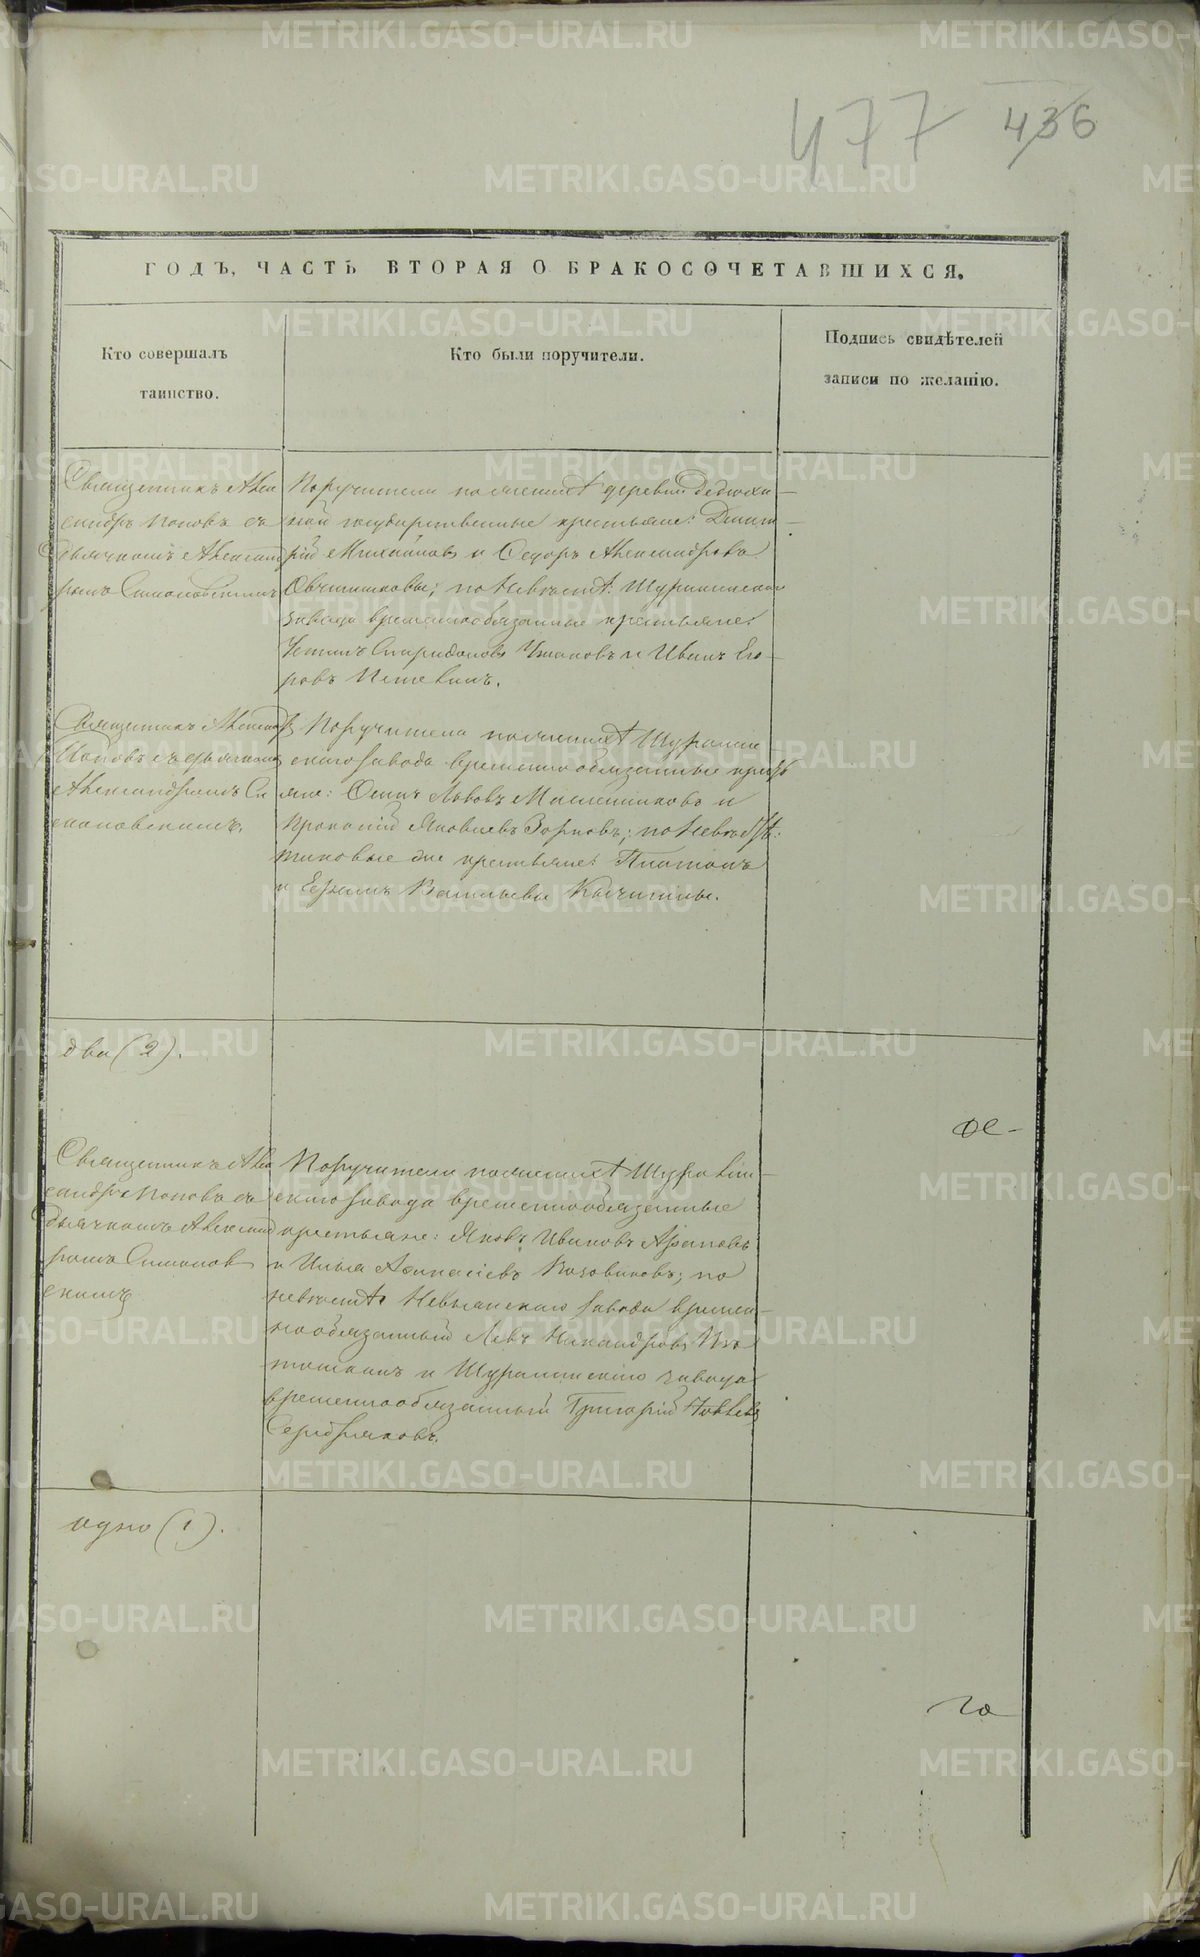 477 436
ГОДЪ, ЧАСТЬ ВТОРАЯ О БРАКОСОЧЕТАВШИХСЯ.
Кто совершалъ
таинство.
Кто были поручители.
Подпись свидѣтелей
записи по желанію.
Священникъ Алек
сандръ Поповъ съ
дьячкомъ Александ
ромъ Симановскимъ
Поручители по женихѣ деревни Дедюхи-
ной государственные крестьяне: Димит-
рій Михайловъ и Ѳедоръ Александровъ
Овчинниковы; по невѣстѣ: Шуралинскаго
завода временнообязанные крестьяне:
Спиридоновъ и Иванъ Его-
ровъ
Священникъ Александръ
Поповъ съ дьячкомъ
Александромъ Си
мановскимъ.
Поручители по женихѣ Шуралин
скаго завода временнообязанные кресть
яне: Осипъ Львовъ Масленниковъ и
Прокопій Яковлевъ Зорновъ; по невѣстѣ:
таковые же крестьяне: Платонъ
и Ефимъ Васильевы
два (2).
ое-
Священникъ Алек
сандръ Поповъ съ
дьячкомъ Александ
ромъ Симанов
скимъ
Поручители по женихѣ Шуралин-
скаго завода временнообязанные
крестьяне: Яковъ Ивановъ Араповъ
и Илья Аѳанасіевъ Казовиковъ; по
невѣстѣ Невьянскаго завода времен-
нообязанный Левъ Никандровъ
и Шуралинскаго завода
временнообязанный Григорій
Серебряковъ.
одно (1).
го
METRIKI.GASO-URAL.RU